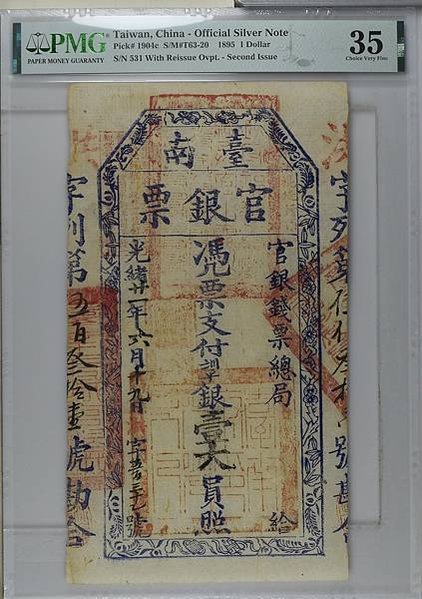 PMG
PAPER MONEY GUARANTY
Taiwan, China - Official Silver Note
Pick# 1904c S/M#T63-20 1895 1 Dollar
S/N 531 With Reissue Ovpt. - Second Issue
35
Choice Very Fine
臺南
官銀票
官銀錢票總局 給
憑票支付 銀壹大員照
光緒廿一年六月十九日 字 號
字列第五百叁拾壹號勘合